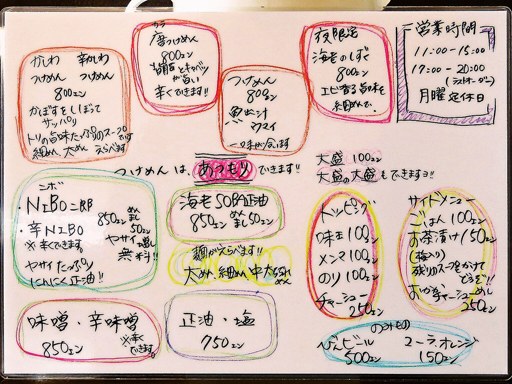 かしわ 辛かしわ
つけめん つけめん
800エン
かぼすをしぼって
サッパリ
トリの旨味たっぷりのスープです
細めん、太め えらべます
唐つけめん
800エン
キャベツが
旨い
辛くできます!!
つけめん
800エン
魚だし汁
ウマイ
夜限定
海老のしずく
800エン
エビ香る旨味を
細めんで。
営業時間
11:00-15:00
17:00-20:00
(ラストオーダー)
月曜 定休日
つけめんは、あつもりできます!!
大盛100エン
大盛の大盛もできますヨ!!
ニボ
・NIBO二郎
・辛NIBO
850エン
めんまし
50エン
※辛くできます。
ヤサイ増し
無料!!
ヤサイたっぷり
にんにく正油!!
海老SOBA正油
850エン めんまし50エン
麺がえらべます!!
太め、細めん、中太ちぢれめん
トッピング
味玉100エン
メンマ100エン
のり100エン
チャーシュー
250エン
サイドメニュー
ごはん100エン
お茶漬け150エン
(梅入り)
残りのスープをかけて
どうぞ!!
おかかチャーシューめし
250エン
味噌・辛味噌
850エン
※辛くできます。
正油・塩
750エン
のみもの
ビンビール
500エン
コーラ、オレンジ
150エン